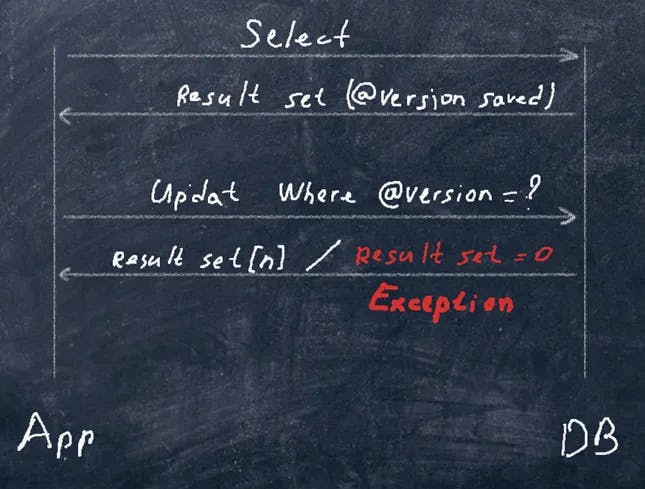 Select
Result set (@version saved)
Updat Where @version = ?
Result set[n] / Result set = 0
Exception
App DB